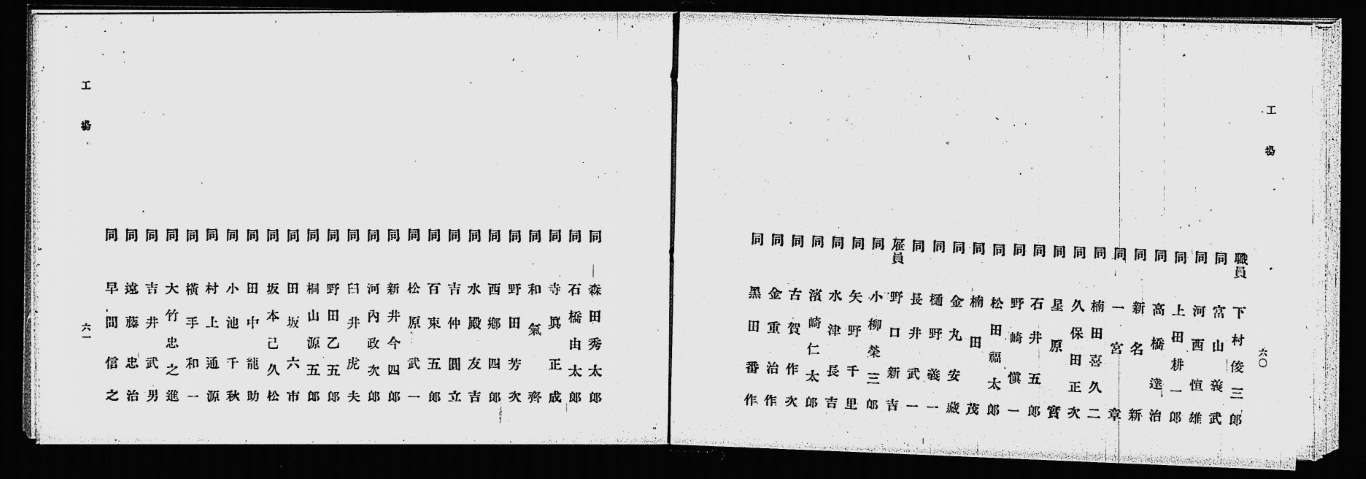 工場
六〇
職員 下村俊三郎
同 富山義武
同 河西恒雄
同 上田耕一郎
同 高橋達治
同 新名新
同 一宮章
同 楠田喜久二
同 久保田正次
同 星原實
同 石井五郎
同 野崎愼一
同 松田福太郎
同 楠田茂
同 金丸安藏
同 樋野義一
同 長井武一
雇員 野口新吉
同 小柳榮三郎
同 矢野千里
同 水津長吉
同 濱崎仁太郎
同 古賀作次
同 金重治作
同 黑田番作
同 森田秀太郎
同 石橋由太郎
同 寺眞正成
同 和氣齊
同 野田芳次
同 西鄕四郎
同 水殿友吉
同 吉仲圓立
同 百束五郎
同 松原武一
同 新井今四郎
同 河內政次郎
同 臼井虎夫
同 野田乙五郎
同 桐山源五郎
同 田坂六市
同 坂本己久松
同 田中龍助
同 小池千秋
同 村上通源
同 橫手和一
同 大竹忠之進
同 吉井武男
同 遠藤忠治
同 早間信之
工場
六一